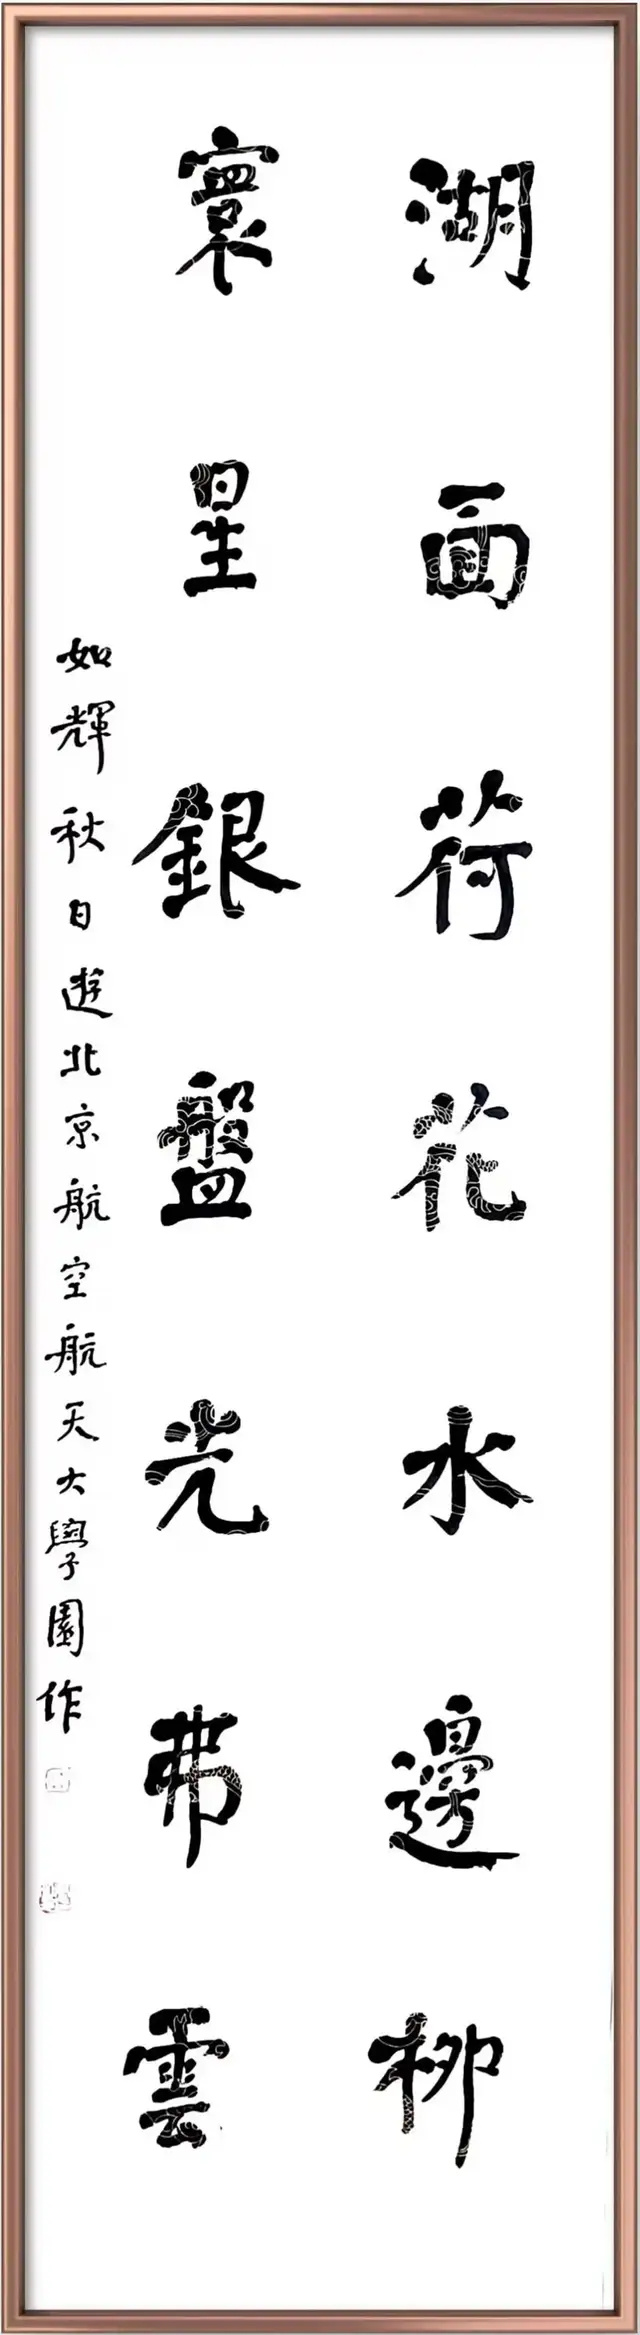 湖面荷花水邊柳
寰星銀盤光弗雲
如輝秋日遊北京航空航天大學園作